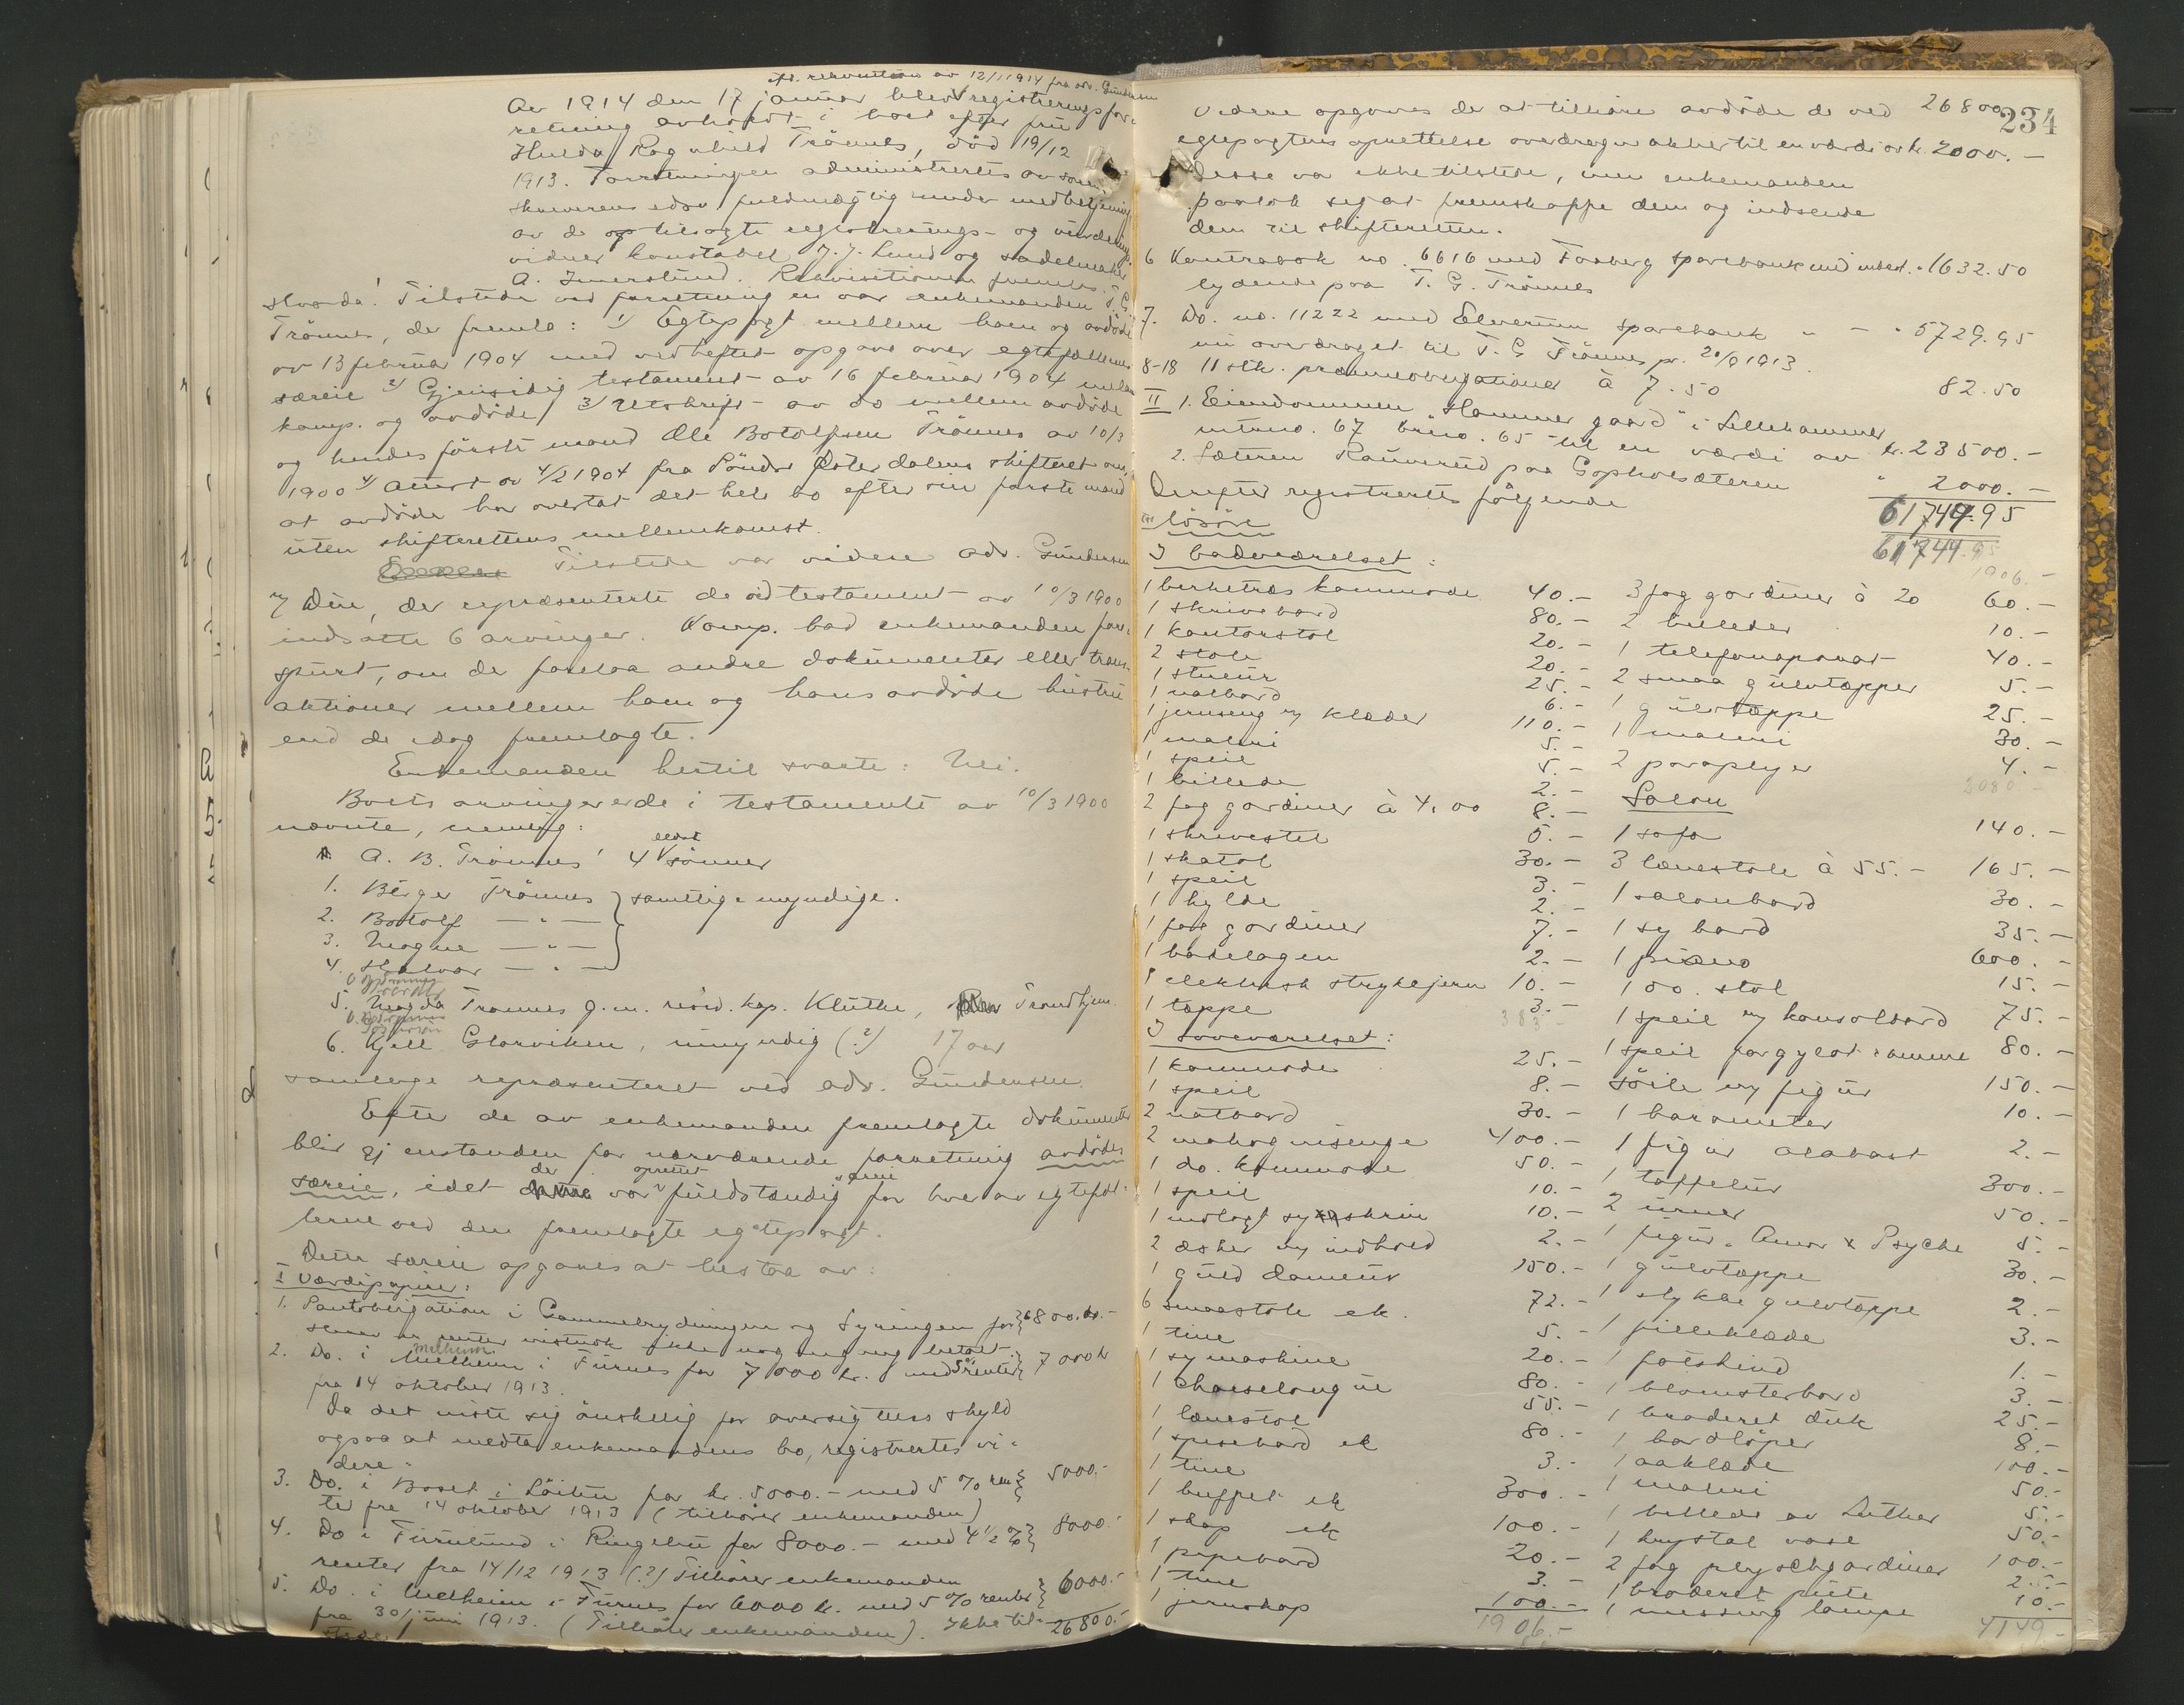 efter rekvisition av 12/1 1914 fra adv. Gundersen
Aar 1914 den 17 januar blev registreringsfor-
retning avholdt i boet efter fru
Hulda Ragnhild Trönnes, död 19/12
1913. Forretningen administrertes av soren-
skriverens edsv fuldmægtig under medbetjening
av de op tilsagte registrerings- og vurderings
vidner konstabel J. J. Lund og sadelmaker
A. Imerslund. Rekvisitionen fremlas. T. G.
Hvorda! Tilstede ved forretningen var enkemanden
Trönnes, der fremla: 1) Egtepagt mellem ham og avdöde
av 13 februar 1904 med vedheftet opgave over egtefællernes
særeie 2) Gjensidig testament av 16 februar 1904 mellem
komp. og avdöde 3) Utskrift av do mellem avdöde
og hendes förste mand Ole Botolfsen Trönnes av 10/3
1900 4) Attest av 4/2 1904 fra Söndre Österdalens skifteret om,
at avdöde har overtat det hele bo efter sin förste mand
uten skifterettens mellemkomst.
Tilstede var videre adv. Gundersen
Dele, der repræsenterte de ved testament av 10/3 1900
indsatte 6 arvinger. Komp. bad enkemanden for-
spurt, om der forelaa andre dokumenter eller trans-
aktioner mellem ham og hans avdöde hustru
end de idag fremlagte.
Enkemanden hertil svarte: Nei.
Boets arvinger er de i testamente av 10/3 1900
nævnte, nemlig:
A. B. Trönnes' 4 eldste sönner
1. Birger Trönnes } samtlige myndige.
2. Botolf — " —
3. Magne — " —
4. Halvor — " —
5. Magda Trönnes g.m. reisd. kap. Klüthe, Trondhjem
6. Kjell Glorviken, umyndig (?) 17 aar
samtlige repræsenteret ved adv. Gundersen.
Efter de av enkemanden fremlagte dokumenter
blir gjenstanden for nærværende forretning avdödes
særeie, idet der var oprettet fuldstændig særeie for hver av egtefæl-
lerne ved den fremlagte egtepagt.
Dette særeie opgaves at bestaa av:
I Værdipapirer:
1. Pantobligation i Gammelrydningen og Syringen for } 6800.kr.-
skriver at renter vistnok ikke nogengang betalt.
2. Do. i Melheim i Furnes for 7000 kr. med 5% renter } 7000 kr
fra 14 oktober 1913.
Da det viste sig önskelig for oversigtens skyld
ogsaa at medta enkemandens bo, registrertes vi-
dere:
3. Do. i Boset i Löiten for kr. 5000.- med 5 % ren- } 5000.-
ter fra 14 oktober 1913 (tilhörer enkemanden)
4. Do i Furulund i Ringebu for 8000.- med 4 1/2 % } 8000.-
renter fra 14/12 1913 (?) Tilhörer enkemanden
5. Do. i Melheim i Furnes for 6000 kr. med 5 % renter } 6000.-
fra 30/juni 1913. (Tilhörer enkemanden). Ikke til- 26800.-
stede
234
Videre opgaves der at tilhöre avdöde de ved 26800
egtepagtens oprettelse overdragne aktier til en værdi av kr. 2000.-
Disse var ikke tilstede, men enkemanden
paatok seg at fremskaffe dem og indsende
dem til skifteretten.
6 Kontrabok no. 6616 med Faaberg sparebank med indest. " 1632.50
lydende paa T. G. Trönnes
7. Do. no. 11222 med Elverum sparebank " - " 5729.95
nu overdraget til T. G Trönnes pr. 20/9 1913.
8-18 11 stk. præmieobligationer à 7.50 82.50
II 1. Eiendommen "Hammer gaard" i Lillehammer
matrno. 67 brno. 65 til en værdi av kr. 23500.-
2. Sæteren Rauverud paa Gopholsæteren " 2000.-
Derefter registrertes fölgende 61744.95
III lösöre 61744.95
1906.-
I badeværelset:
1 berketræs kommode 40.- 3 fag gardiner à 20 60.-
1 skrivebord 80.- 2 billeder 10.-
1 kontorstol 20.- 1 telefonaparat 40.-
2 stole 20.- 2 smaa gulvtæpper 5.-
1 stueur 25.- 1 gulvtæppe 25.-
1 natbord 6.- 1 maleri 30.-
1 jernseng m klæder 110.- 2 paraplyer 4.-
1 maleri 5.- 2080.-
1 speil 5.- Salon
1 billede 2.- 1 sofa 140.-
2 fag gardiner à 4.00 8.- 3 lænestole à 55.- 165.-
1 skrivestel 5.- 1 salonbord 30.-
1 skatol 30.- 1 sybord 35.-
1 speil 3.- 1 piano 600.-
1 hylde 2.- 1 do. stol 15.-
1 fag gardiner 7.- 1 speil m konsolbord 75.-
1 badelagen 2.- 1 speil forgyldt ramme 80.-
1 elektrisk strykejern 10.- söile m figur 150.-
1 tæppe 3.- 1 barometer 10.-
383.-
I soveværelset: 1 figur alabast 2.-
1 kommode 25.- 1 taffelur 300.-
1 speil 8.- 2 urner 50.-
2 natbord 30.- 1 figur "Amor & Psyche 5.-
2 mahognisenge 400.- 1 gulvtæppe 30.-
1 do. kommode 50.- 1 stykke gulvtæppe 2.-
1 speil 10.- 1 pilleklæde 3.-
1 indlagt syskrin 10.- 1 fotskind 1.-
2 æsker m indhold 2.- 1 blomsterbord 3.-
1 guld dameur 150.- 1 broderet duk 25.-
6 smaastole ek. 72.- 1 bordlöper 8.-
1 tine 5.- 1 aaklæde 100.-
1 symaskine 20.- 1 maleri 50.-
1 Chaiselongue 80.- 1 billede av Luther 5.-
1 lænestol 55.- 1 krystal vase 50.-
1 spisebord ek 80.- 2 fag plyschgardiner 100.-
1 tine 3.- 1 broderet pute 2.-
1 buffet ek 300.- 1 messing lampe 10.-
1 skap ek 100.- 4149.-
1 pipebord 20.-
1 tine 3.-
1 jernskap 100.-
1906.-